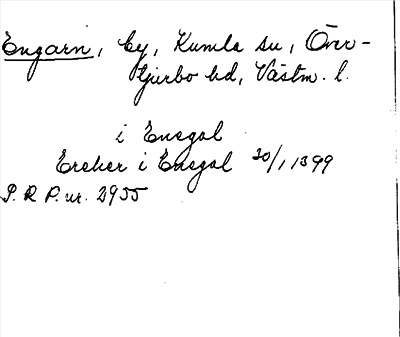 Engarn, by, Kumla sn, Över-
tjurbo hd, Västm. l.
i Ensgal
Ereker i Ensgal 20/1 1399
S. R P. nr. 2955